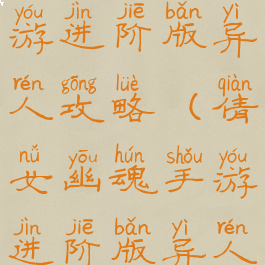 yóu jìn jiē bǎn yì
游进阶版异
rén gōng lüè qiàn
人攻略（倩
nǚ yōu hún shǒu yóu
女幽魂手游
jìn jiē bǎn yì rén
进阶版异人